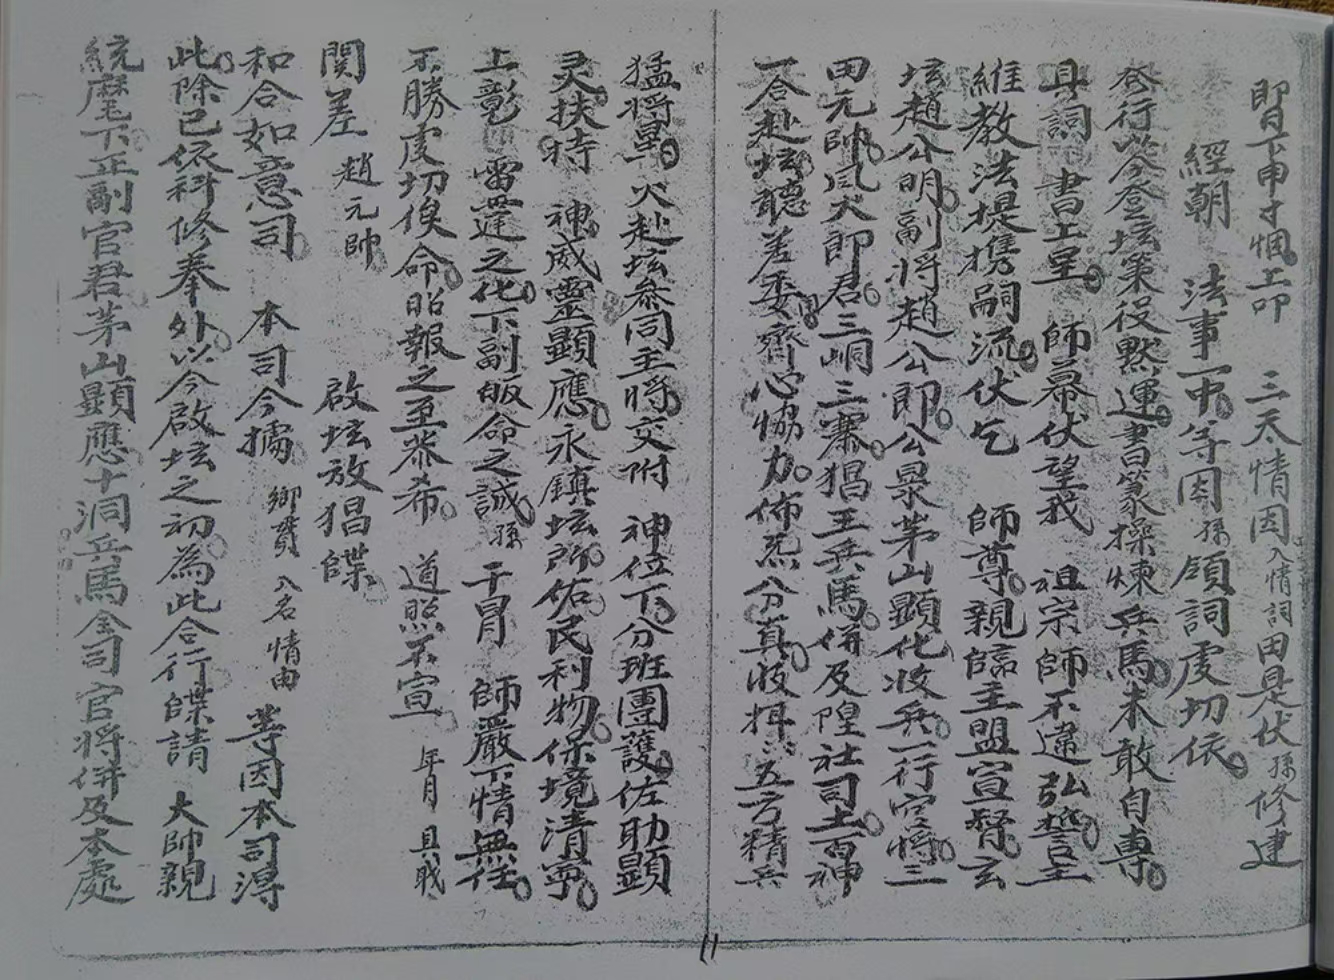 即下申寸悃上叩　三天情因入情詞田是伏孫修建
經朝　法事一中等因孫領詞虔切依
奉行以今登坛策役默運書篆操煉兵馬未敢自專
具詞　書上呈　師幕伏望我　祖宗師不違弘誓主
維教法堤携嗣流伏乞　師尊親臨主盟宣督玄
坛趙公明副将趙公郎公景茅山顯化收兵一行官將三
田元帥風火郎君三峒三寨猖王兵馬併及隍社司土百神
一合赴坛聽差委齊心恊力佈炁分真收捍　五方精兵
猛将星火赴坛叅同主將交附　神位下分班團護佐助顯
灵扶持　神威靈顯應永鎮坛所佑民利物保境清寧
上彰　雷霆之化下副皈命之誠孫干冒　師嚴下情無任
不勝虔切俟命昭報之至恭希　道照不宣　年月　具职
関差　趙元帥　啟坛放猖牒
和合如意司　本司今據　鄉貫　入名情由　等因本司淂
此除已依科修奉外以今啟坛之初為此合行牒請　大帥親
統麾下正副官君茅山顯應十洞兵馬全司官將併及本處
11